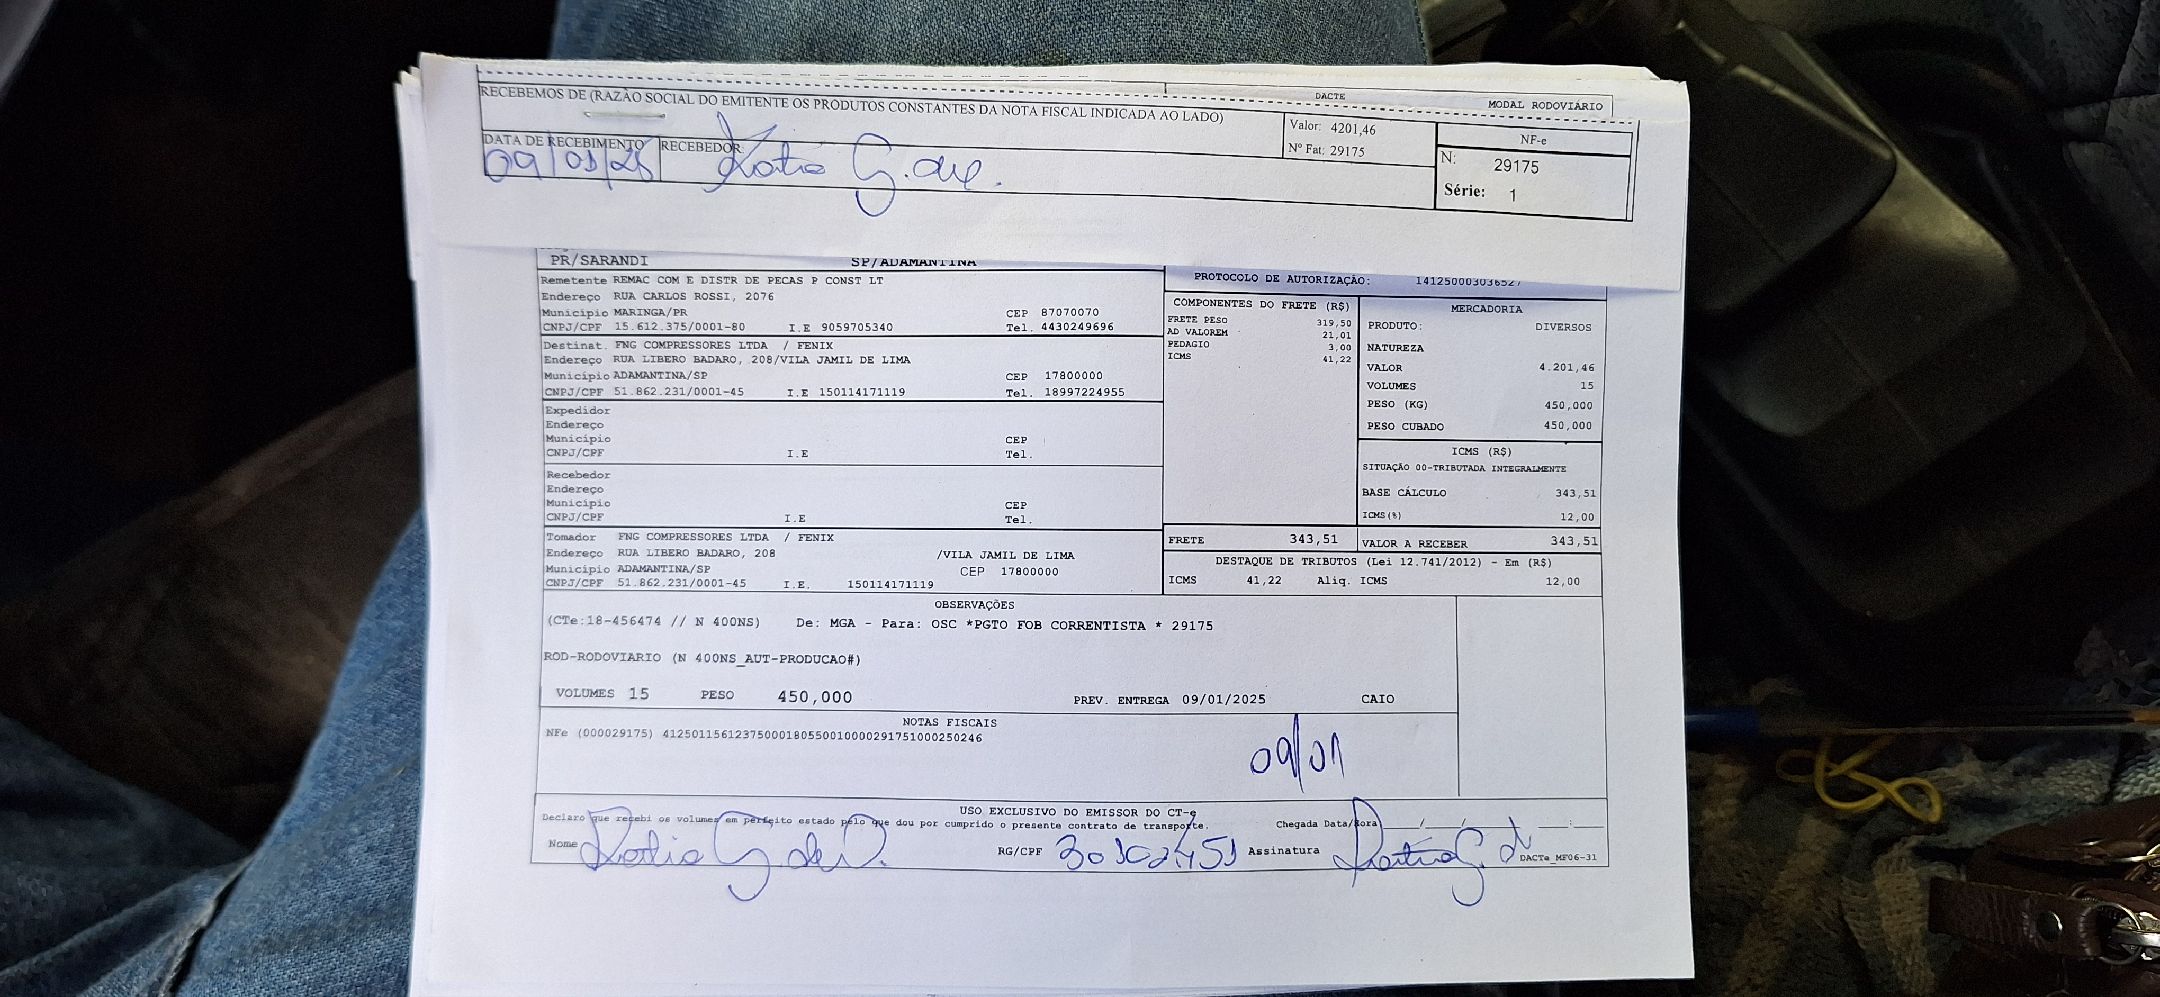 DACTE
MODAL RODOVIÁRIO
RECEBEMOS DE (RAZÃO SOCIAL DO EMITENTE OS PRODUTOS CONSTANTES DA NOTA FISCAL INDICADA AO LADO)
Valor: 4201,46
Nº Fat: 29175
NF-e
N: 29175
Série: 1
DATA DE RECEBIMENTO
RECEBEDOR:
09/01/25
PR/SARANDI SP/ADAMANTINA
Remetente REMAC COM E DISTR DE PECAS P CONST LT
Endereço RUA CARLOS ROSSI, 2076
Município MARINGA/PR CEP 87070070
CNPJ/CPF 15.612.375/0001-80 I.E 9059705340 Tel. 4430249696
Destinat. FNG COMPRESSORES LTDA / FENIX
Endereço RUA LIBERO BADARO, 208/VILA JAMIL DE LIMA
Município ADAMANTINA/SP CEP 17800000
CNPJ/CPF 51.862.231/0001-45 I.E 150114171119 Tel. 18997224955
Expedidor
Endereço
Município CEP
CNPJ/CPF I.E Tel.
Recebedor
Endereço
Município CEP
CNPJ/CPF I.E Tel.
Tomador FNG COMPRESSORES LTDA / FENIX
Endereço RUA LIBERO BADARO, 208 /VILA JAMIL DE LIMA
Município ADAMANTINA/SP CEP 17800000
CNPJ/CPF 51.862.231/0001-45 I.E. 150114171119
PROTOCOLO DE AUTORIZAÇÃO: 141250003036527
COMPONENTES DO FRETE (R$)
FRETE PESO 319,50
AD VALOREM 21,01
PEDAGIO 3,00
ICMS 41,22
MERCADORIA
PRODUTO: DIVERSOS
NATUREZA
VALOR 4.201,46
VOLUMES 15
PESO (KG) 450,000
PESO CUBADO 450,000
ICMS (R$)
SITUAÇÃO 00-TRIBUTADA INTEGRALMENTE
BASE CÁLCULO 343,51
ICMS(%) 12,00
FRETE 343,51
VALOR A RECEBER 343,51
DESTAQUE DE TRIBUTOS (Lei 12.741/2012) - Em (R$)
ICMS 41,22 Aliq. ICMS 12,00
OBSERVAÇÕES
(CTe:18-456474 // N 400NS) De: MGA - Para: OSC *PGTO FOB CORRENTISTA * 29175
ROD-RODOVIARIO (N 400NS_AUT-PRODUCAO#)
VOLUMES 15 PESO 450,000 PREV. ENTREGA 09/01/2025 CAIO
NOTAS FISCAIS
NFe (000029175) 41250115612375000180550010000291751000250246
09/01
USO EXCLUSIVO DO EMISSOR DO CT-e
Declaro que recebi os volumes em perfeito estado pelo que dou por cumprido o presente contrato de transporte.
Chegada Data/Hora / / :
Nome RG/CPF Assinatura
DACTe_MF06-31